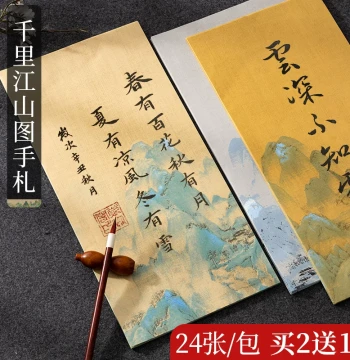 千里江山图手札
春有百花秋有月
夏有凉風冬有雪
歲次辛丑秋月
雲深不知
24张/包 买2送1